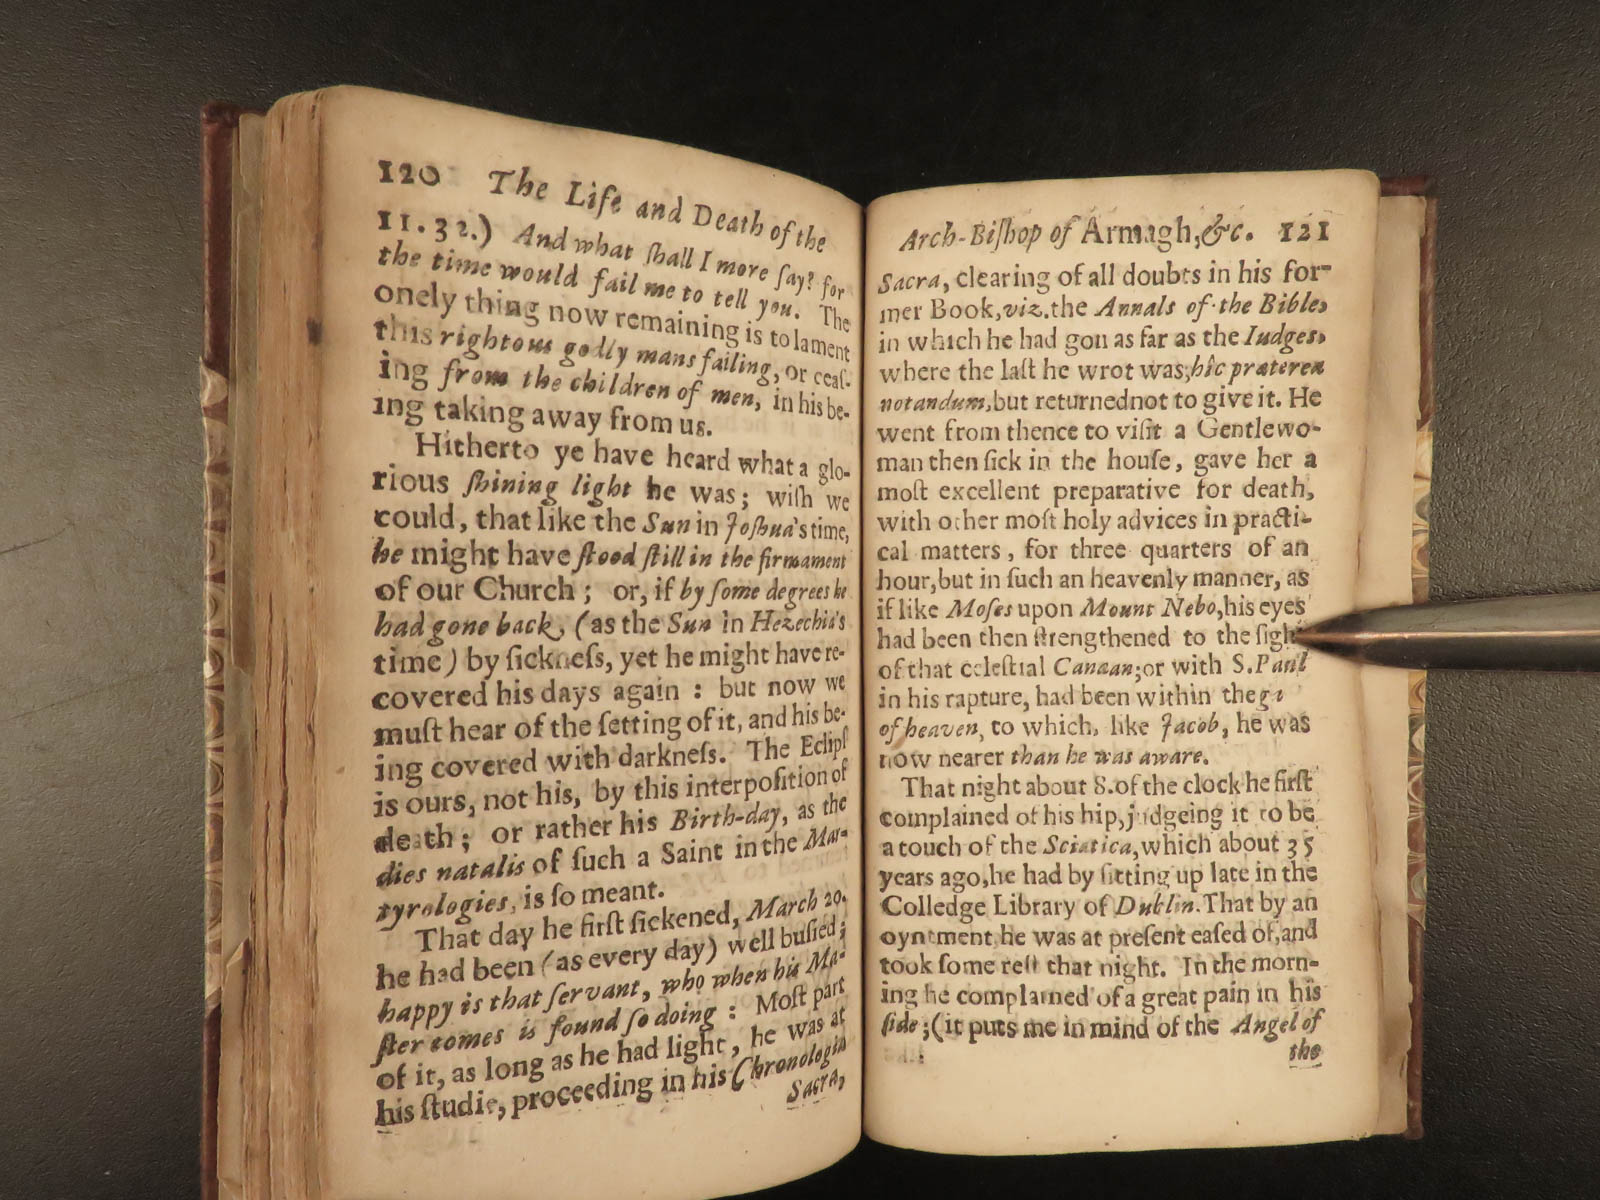 120 The Life and Death of the
11.32.) And what ſhall I more ſay? for
the time would fail me to tell you. The
onely thing now remaining is to lament
this rightous godly mans failing, or ceaſ-
ing from the children of men, in his be-
ing taking away from us.
Hitherto ye have heard what a glo-
rious ſhining light he was; wiſh we
could, that like the Sun in Joſhua's time,
he might have ſtood ſtill in the firmament
of our Church; or, if by ſome degrees he
had gone back, (as the Sun in Hezechia's
time) by ſickneſs, yet he might have re-
covered his days again: but now we
muſt hear of the ſetting of it, and his be-
ing covered with darkneſs. The Eclipſ
is ours, not his, by this interpoſition of
death; or rather his Birth-day, as the
dies natalis of ſuch a Saint in the Mar-
tyrologies, is ſo meant.
That day he firſt ſickened, March 20.
he had been (as every day) well buſied;
happy is that ſervant, who when his Ma-
ſter comes is found ſo doing: Moſt part
of it, as long as he had light, he was at
his ſtudie, proceeding in his Chronologia
Sacra,
Arch-Biſhop of Armagh, &c. 121
Sacra, clearing of all doubts in his for-
mer Book, viz. the Annals of the Bible,
in which he had gon as far as the Iudges,
where the laſt he wrot was, hîc præterea
notandum, but returned not to give it. He
went from thence to viſit a Gentlewo-
man then ſick in the houſe, gave her a
moſt excellent preparative for death,
with other moſt holy advices in practi-
cal matters, for three quarters of an
hour, but in ſuch an heavenly manner, as
if like Moſes upon Mount Nebo, his eyes
had been then ſtrengthened to the ſigh
of that celeſtial Canaan; or with S. Paul
in his rapture, had been within the
of heaven, to which, like Jacob, he was
now nearer than he was aware.
That night about 8. of the clock he firſt
complained of his hip, judgeing it to be
a touch of the Sciatica, which about 35
years ago, he had by ſitting up late in the
Colledge Library of Dublin. That by an
oyntment he was at preſent eaſed of, and
took ſome reſt that night. In the morn-
ing he complained of a great pain in his
ſide; (it puts me in mind of the Angel of
the